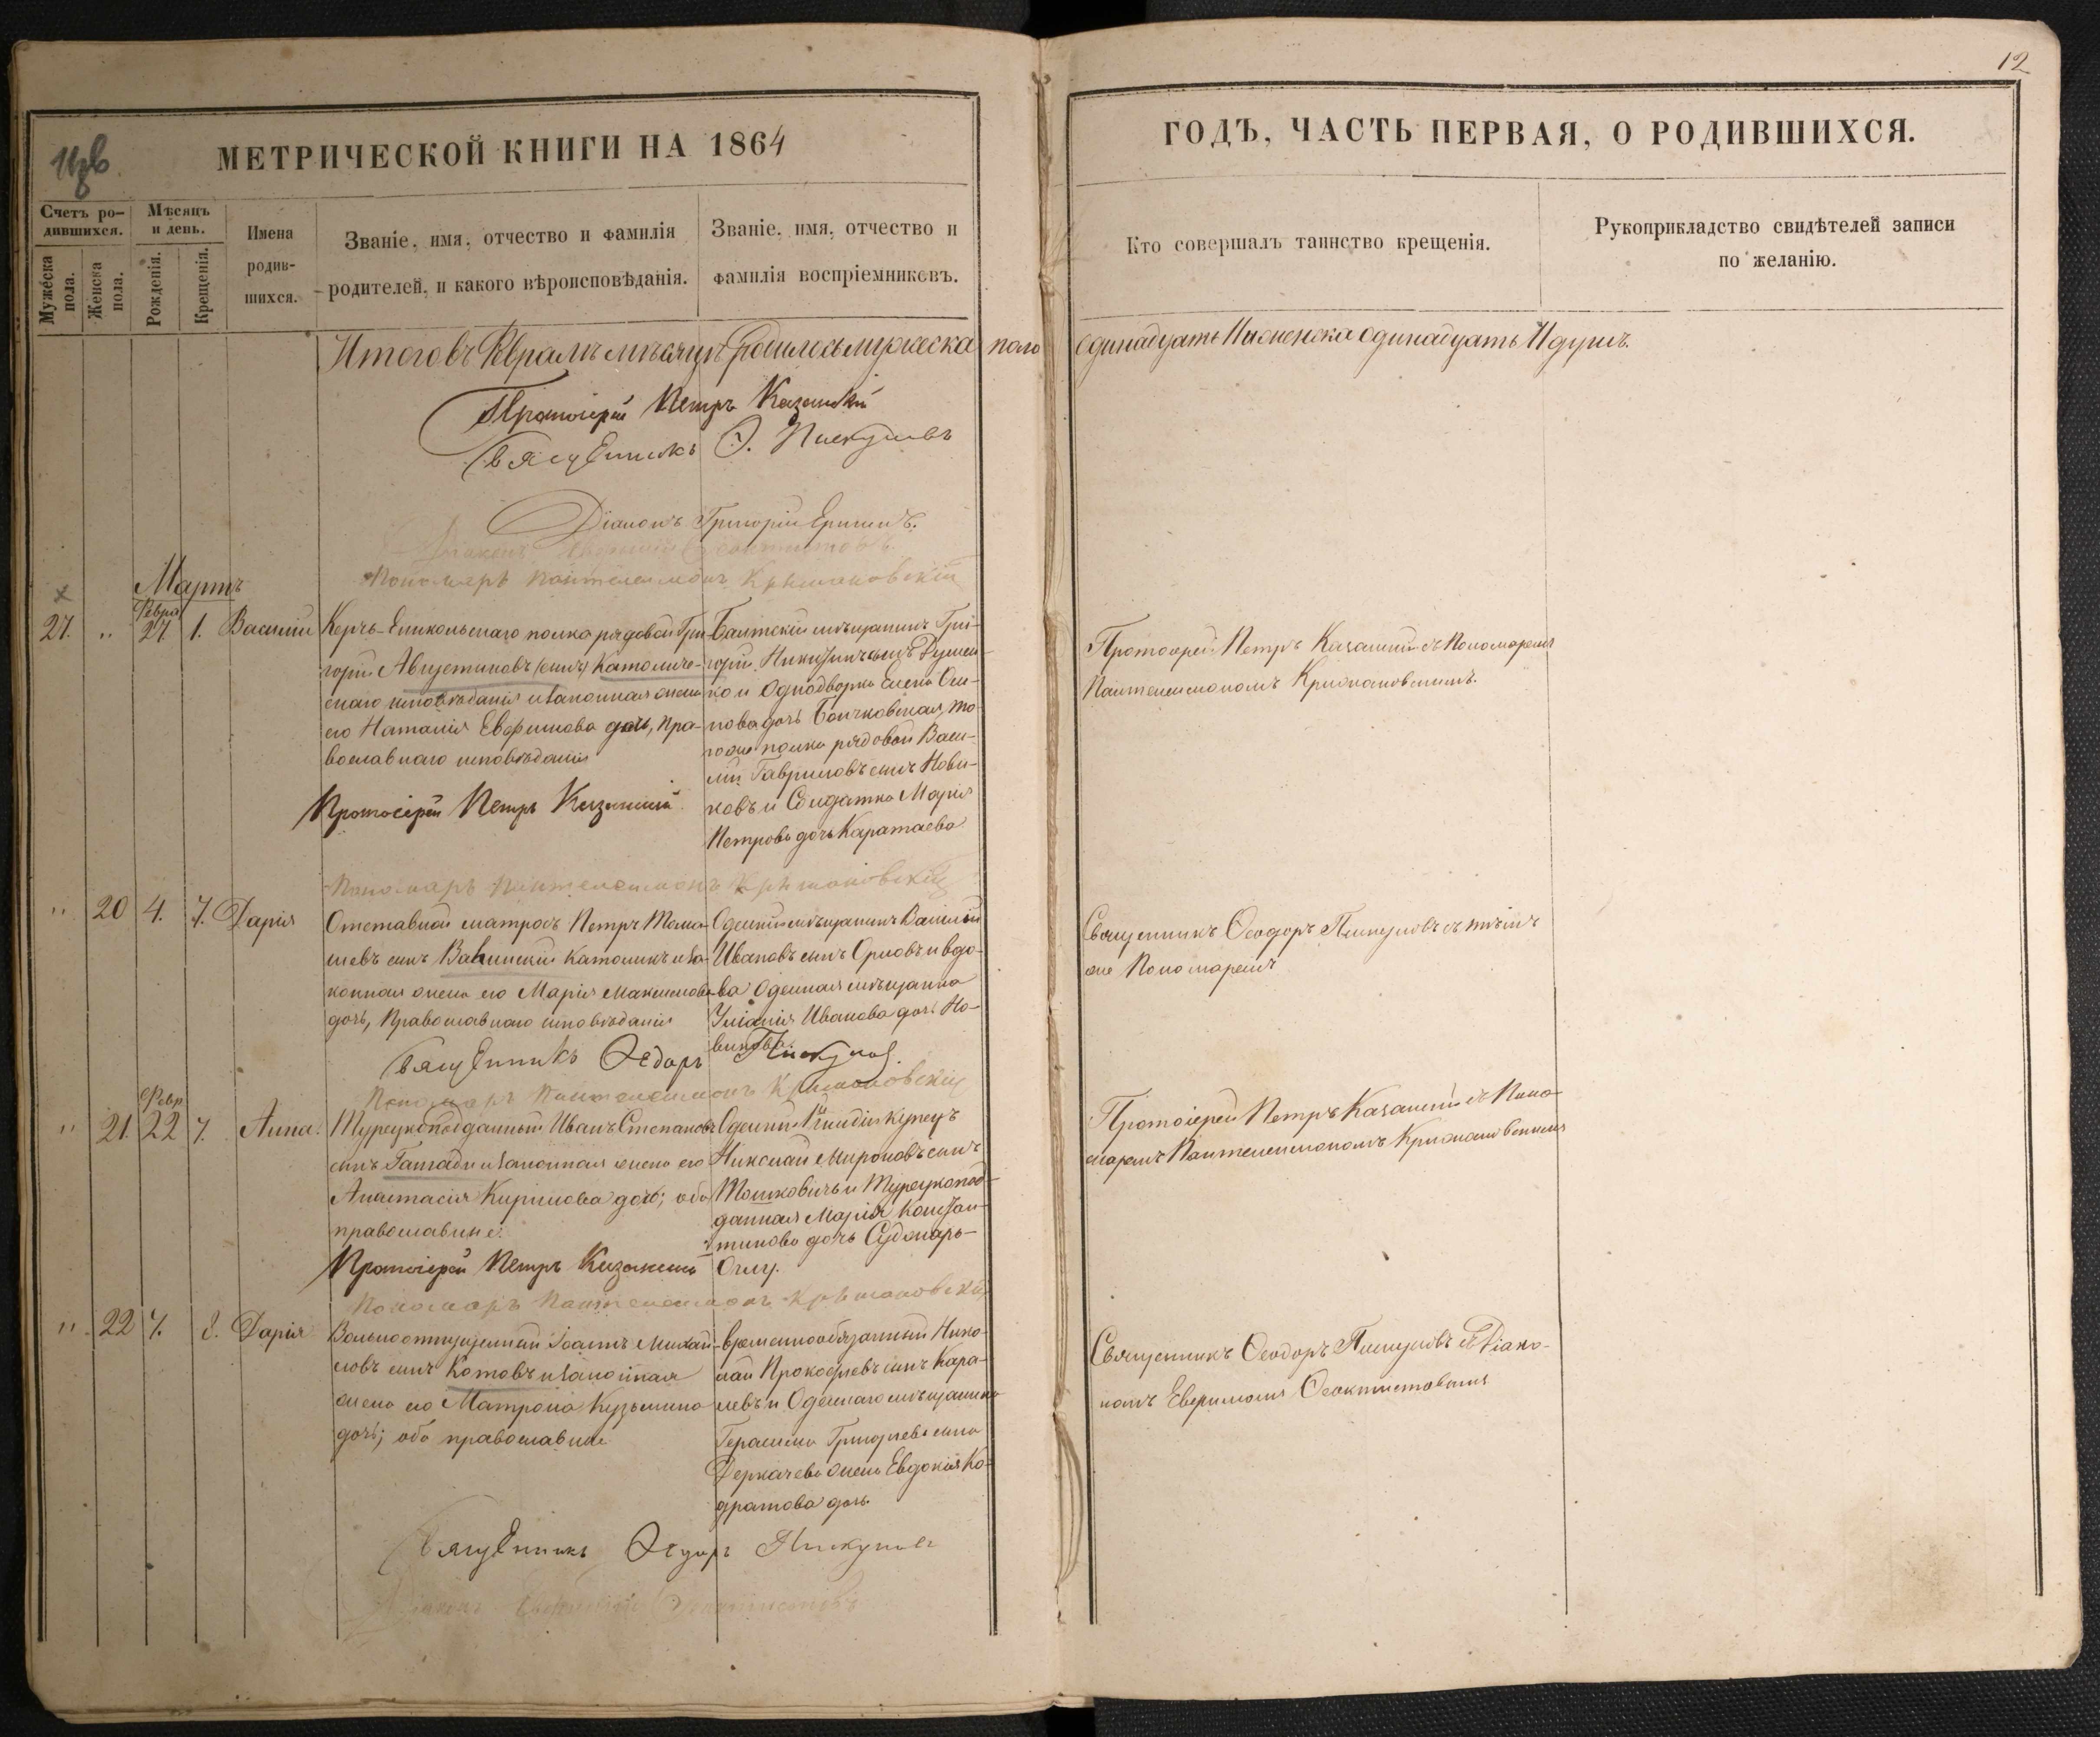 12
Изв.
МЕТРИЧЕСКОЙ КНИГИ НА 1864
ГОДЪ, ЧАСТЬ ПЕРВАЯ, О РОДИВШИХСЯ.
Счетъ ро-
дившихся.
Мужеска пола.
Женска пола.
Мѣсяцъ
и день.
Рожденія.
Крещенія.
Имена
родив-
шихся.
Званіе, имя, отчество и фамилія
родителей, и какого вѣроисповѣданія.
Званіе, имя, отчество и
фамилія воспріемниковъ.
Кто совершалъ таинство крещенія.
Рукоприкладство свидѣтелей записи
по желанію.
Итого въ Февралѣ мѣсяцѣ родилось мужеска пола одинадцать и женска одинадцать душъ.
Протоіерей Петръ Казанскій
Священникъ Ѳ. Пискуновъ
Діаконъ Григорій
Діаконъ Ѳеоктистовъ
Пономарь Пантелеимонъ Крыжановскій
Мартъ
27. " Февр. 27 1. Василій
Керчь-Еникольскаго полка рядовой Гри-
горій Августиновъ (сынъ) Католиче-
скаго исповѣданія и законная жена
его Наталія Евфимова дочь, Пра-
вославнаго исповѣданія
Протоіерей Петръ Казанскій
Балтскій мѣщанинъ Гри-
горій Никитинъ сынъ
ко и Однодворка Елена Оси-
пова дочь Бочковская, то-
гоже полка рядовой Васи-
лій Гавриловъ сынъ Нови-
ковъ и Солдатка Марія
Петрова дочь Каратаева
Протоіерей Петръ Казанскій съ Пономаремъ
Пантелеимономъ Крижановскимъ.
Пономарь Пантелеимонъ Крыжановскій
" 20 4. 7. Дарія
Отставной матросъ Петръ Тома-
шевъ сынъ Католикъ и за-
конная жена его Марія Максимова
дочь, Православнаго исповѣданія
Одесскій мѣщанинъ Василій
Ивановъ сынъ Орловъ и вдо-
ва Одесская мѣщанка
Улiанія Иванова дочь Но-
викова.
Священникъ Ѳеодоръ Пискуновъ съ тѣмъ
же Пономаремъ
Священникъ Ѳедоръ Пискуновъ.
Пономарь Пантелеимонъ Крыжановскій
" 21. Февр. 22 7. Анна.
Турецкоподданный Иванъ Степановъ
сынъ и законная жена его
Анастасія Кирилова дочь; оба
православные.
Протоіерей Петръ Казанскій
Одесскій гильдіи купецъ
Николай Мироновъ сынъ
Тошковичъ и Турецкопод-
данная Марія Констан-
тинова дочь
Оглу.
Протоіерей Петръ Казанскій съ Поно-
маремъ Пантелеимономъ Крижановскимъ
Пономарь Пантелеимонъ Крыжановскій
" 22 7. 8. Дарія
Вольноотпущенный Іоаннъ Михай-
ловъ сынъ Котовъ и законная
жена его Матрона Кузьмина
дочь; оба православные.
Временнообязанный Нико-
лай Прокофіевъ сынъ Кара-
левъ и Одесскаго мѣщанина
Герасима Григорьева сына
Деркачева жена Евдокія Ко-
дратова дочь.
Священникъ Ѳеодоръ Пискуновъ съ Діако-
номъ Ѳеоктистовымъ
Священникъ Ѳедоръ Пискуновъ
Діаконъ Ѳеоктистовъ